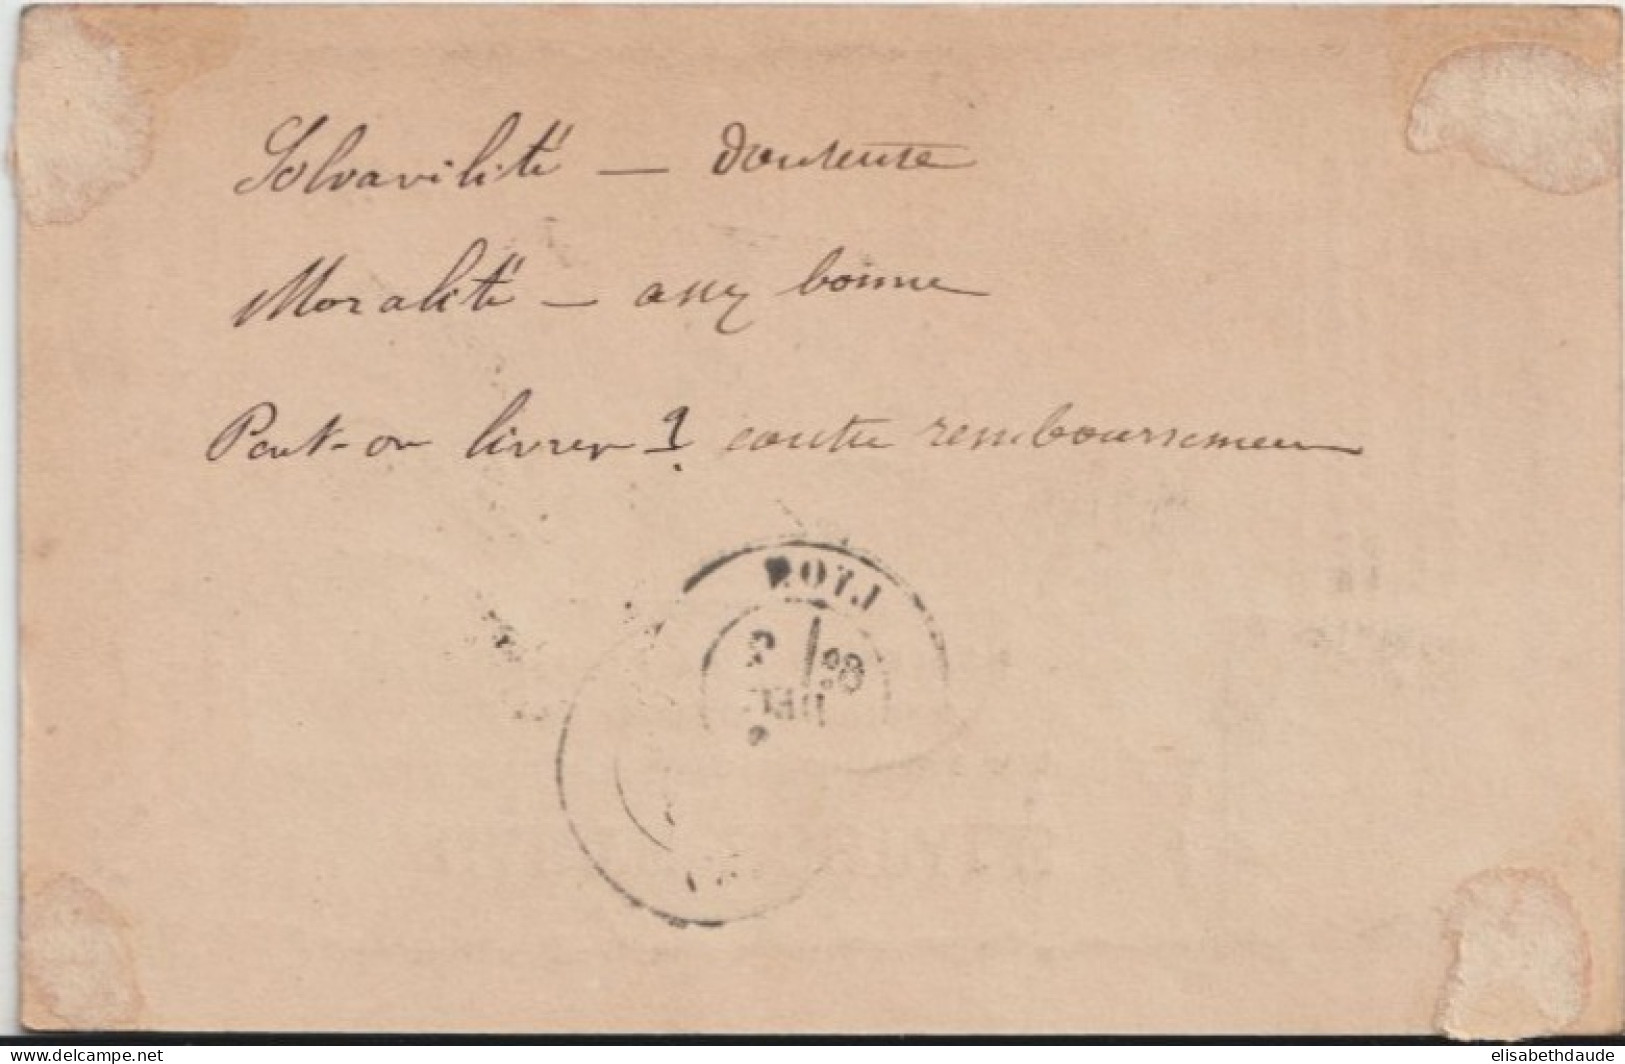 Solvavilité — douteuse
Moralité — assez bonne
Peut-on livrer ? contre remboursement
LYON
elisabethdaude
www.delcampe.net